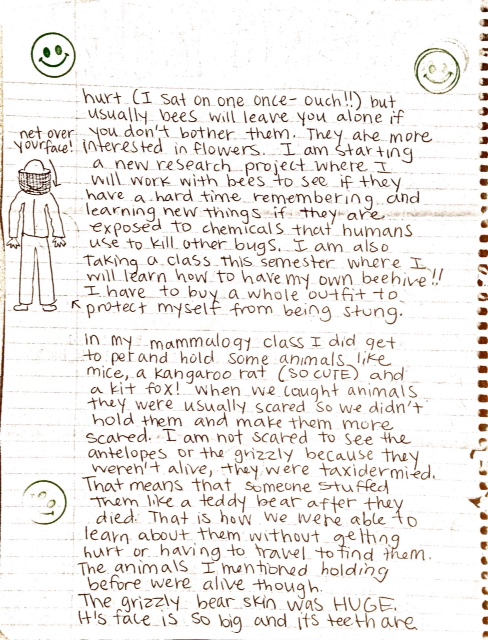 hurt (I sat on one once- ouch!!) but
usually bees will leave you alone if
you don't bother them. They are more
interested in flowers. I am starting
a new research project where I
will work with bees to see if they
have a hard time remembering and
learning new things if they are
exposed to chemicals that humans
use to kill other bugs. I am also
taking a class this semester where I
will learn how to have my own beehive!!
I have to buy a whole outfit to
protect myself from being stung.
net over
your face!
in my mammalogy class I did get
to pet and hold some animals like
mice, a kangaroo rat (SO CUTE) and
a kit fox! when we caught animals
they were usually scared so we didn't
hold them and make them more
scared. I am not scared to see the
antelopes or the grizzly because they
weren't alive, they were taxidermied.
That means that someone stuffed
them like a teddy bear after they
died. That is how we were able to
learn about them without getting
hurt or having to travel to find them.
The animals I mentioned holding
before were alive though.
The grizzly bear skin was HUGE.
It's face is so big and its teeth are